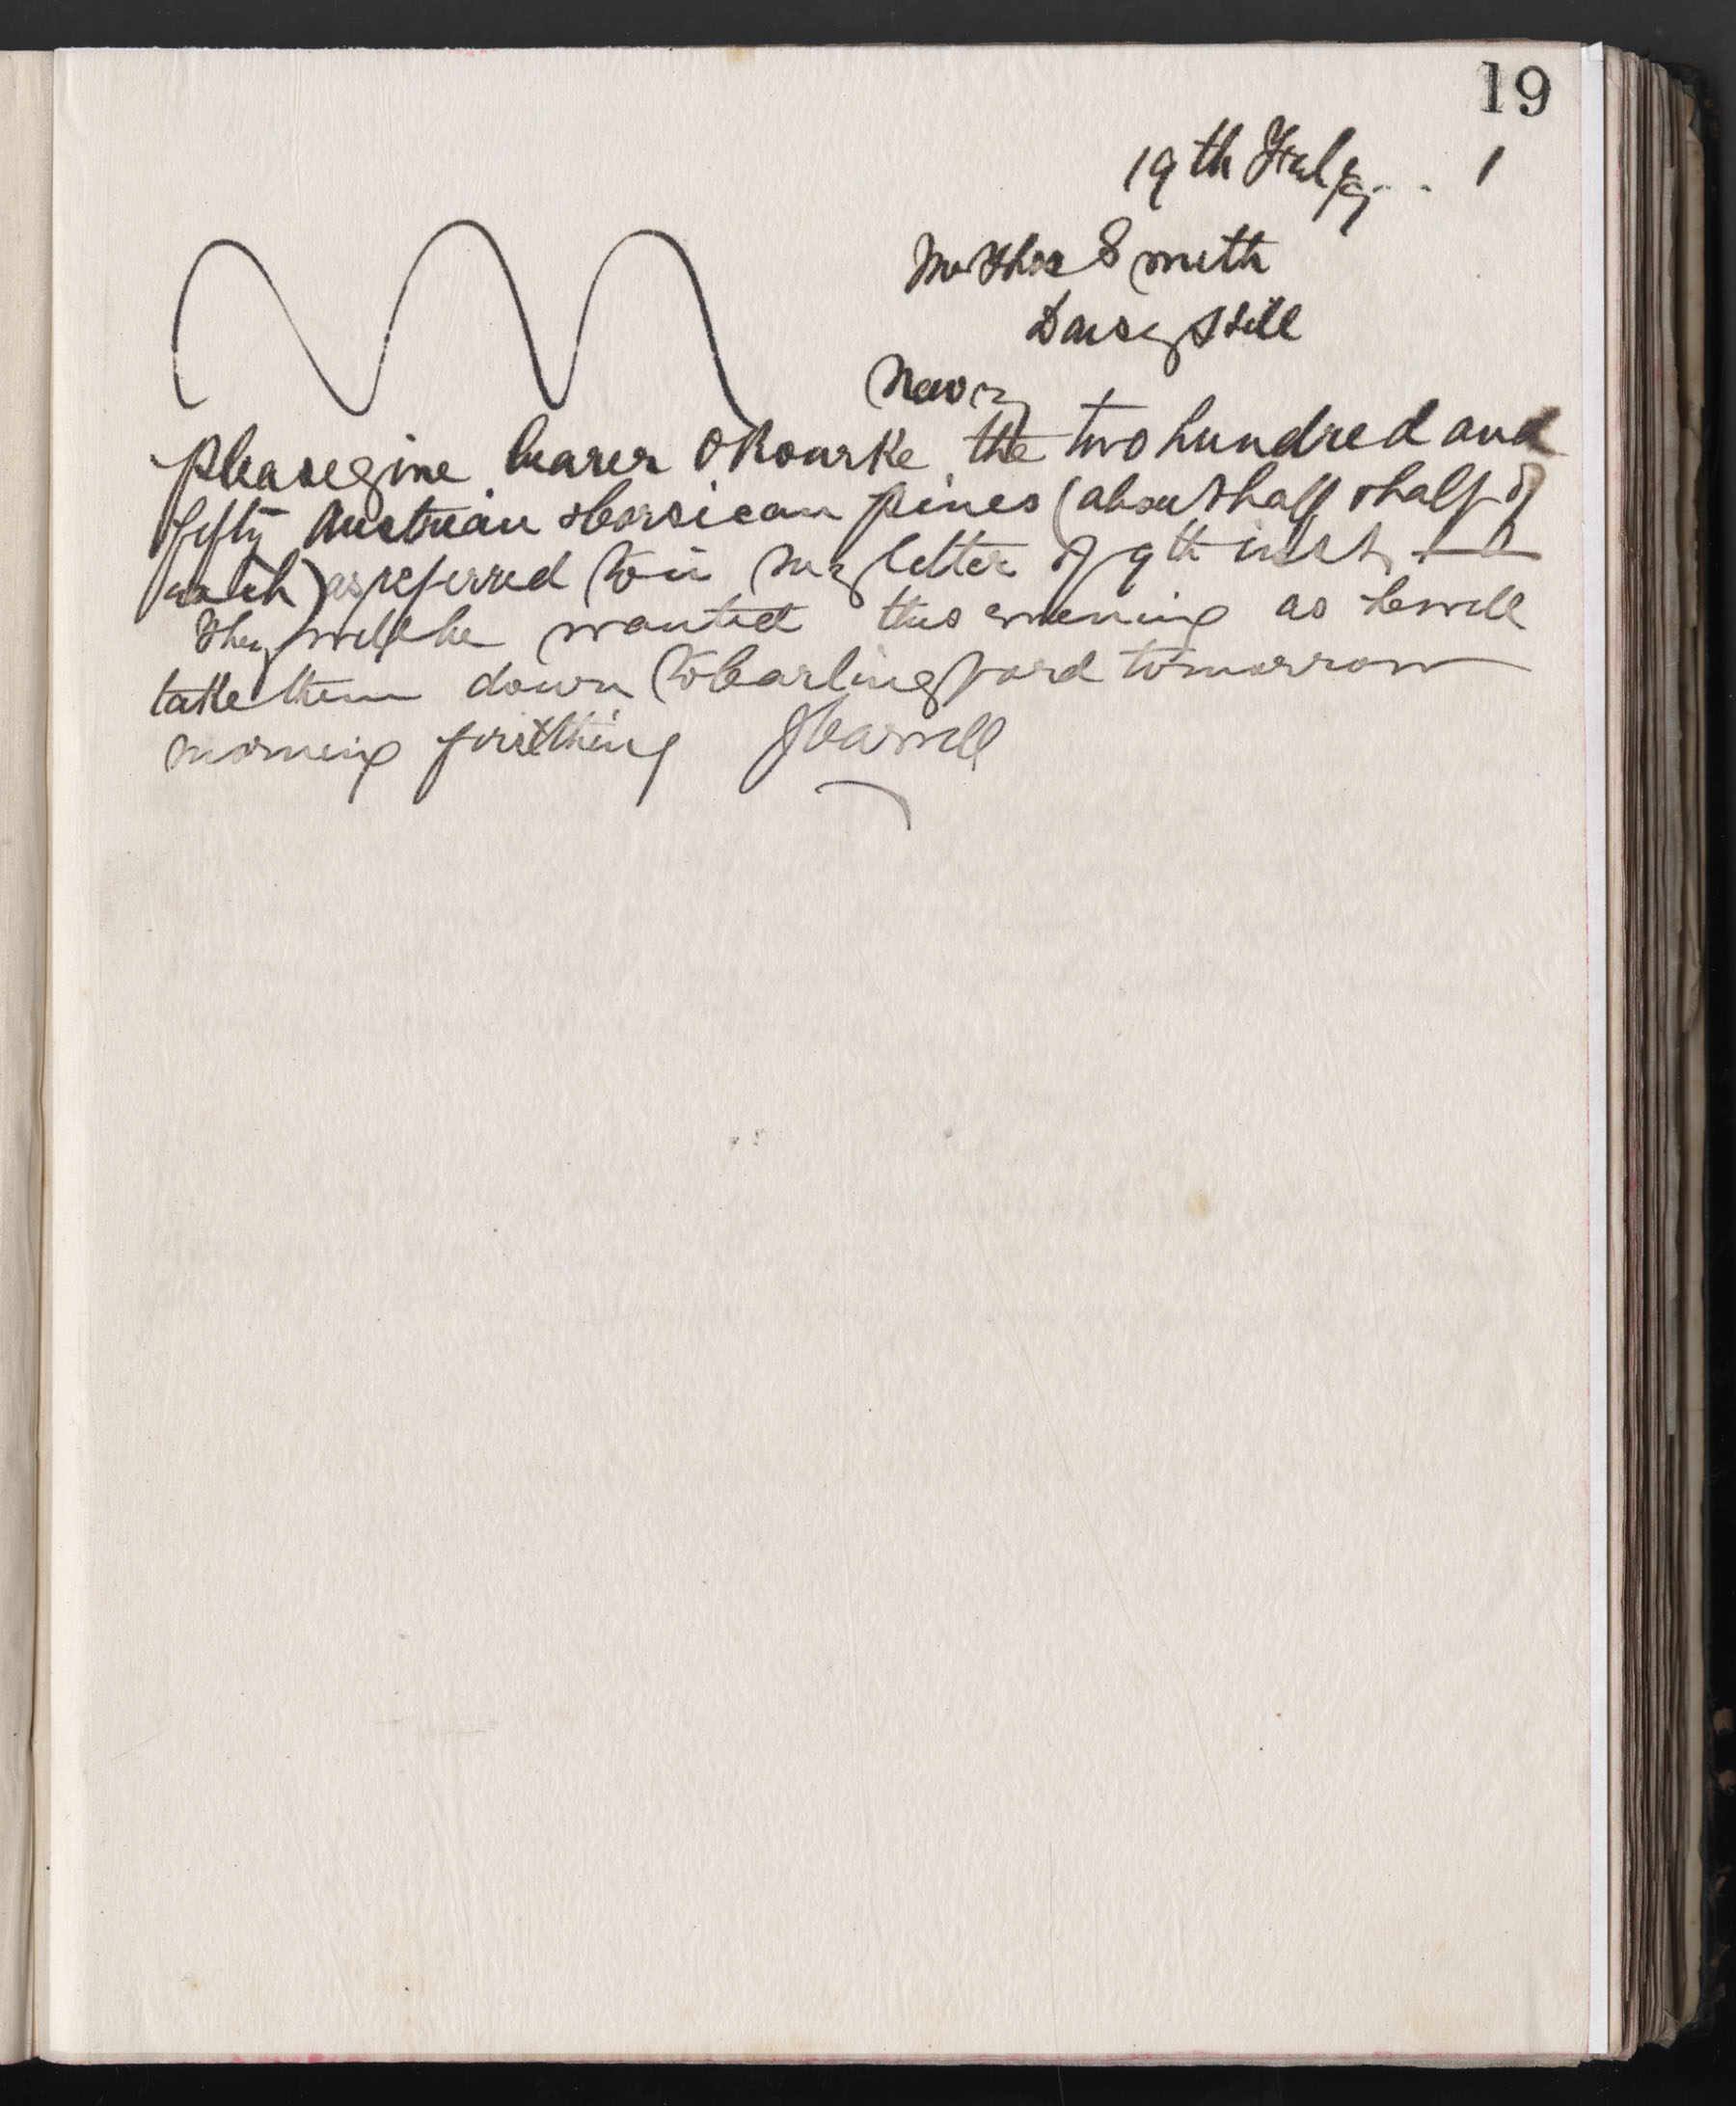 19
19th Feby .. 1
Mr Thos Smith
Daisy Hill
Newry
Please give bearer O Rourke the two hundred and
fifty Austrian & Corsican pines (about half & half of
each) as referred to in my letter of 9th inst
They will be wanted this evening as he will
take them down to Carlingford tomorrow
morning first thing